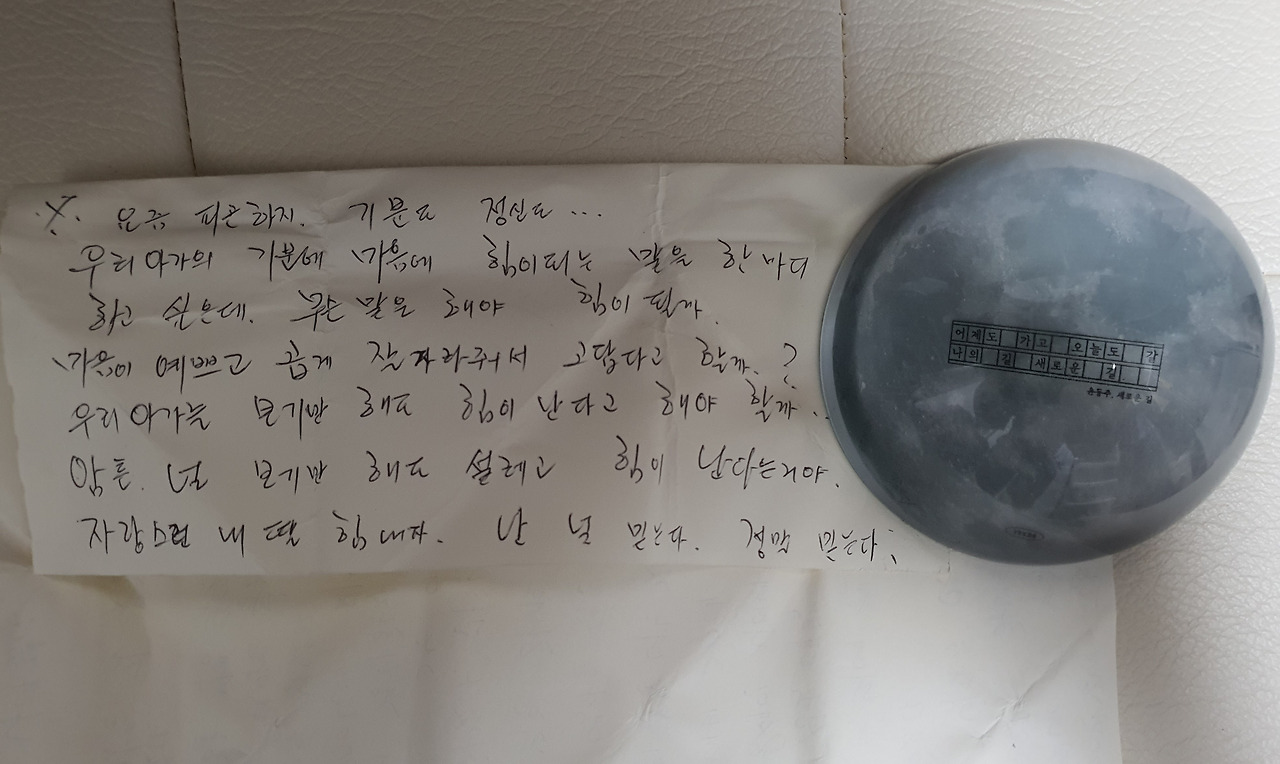 ※. 요즘 피곤하지. 기분도 정신도...
우리아가의 기분에 마음에 힘이되는 말을 한마디
하고 싶은데. 무슨 말을 해야 힘이 될까.
마음이 예쁘고 곱게 잘자라줘서 고맙다고 할까.?
우리아가는 보기만 해도 힘이 난다고 해야 할까..
암튼. 널 보기만 해도 설레고 힘이 난다는거야.
자랑스런 내 딸 힘내자. 난 널 믿는다. 정말 믿는다.
어제도 가고 오늘도 갈
나의 길 새로운 길
윤동주, 새로운 길